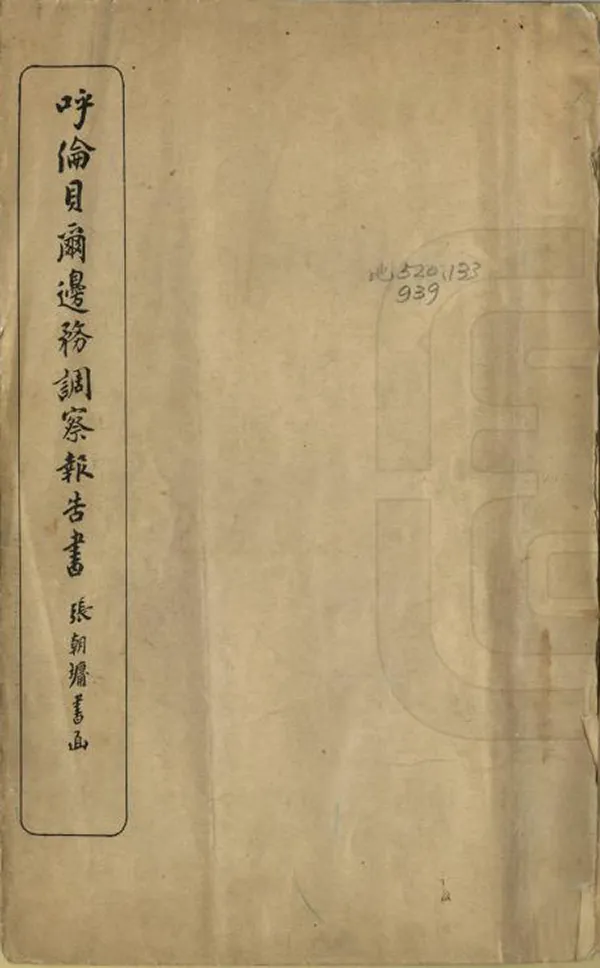 呼倫貝爾邊務調察報告書
張朝墉書函
地520.133
939